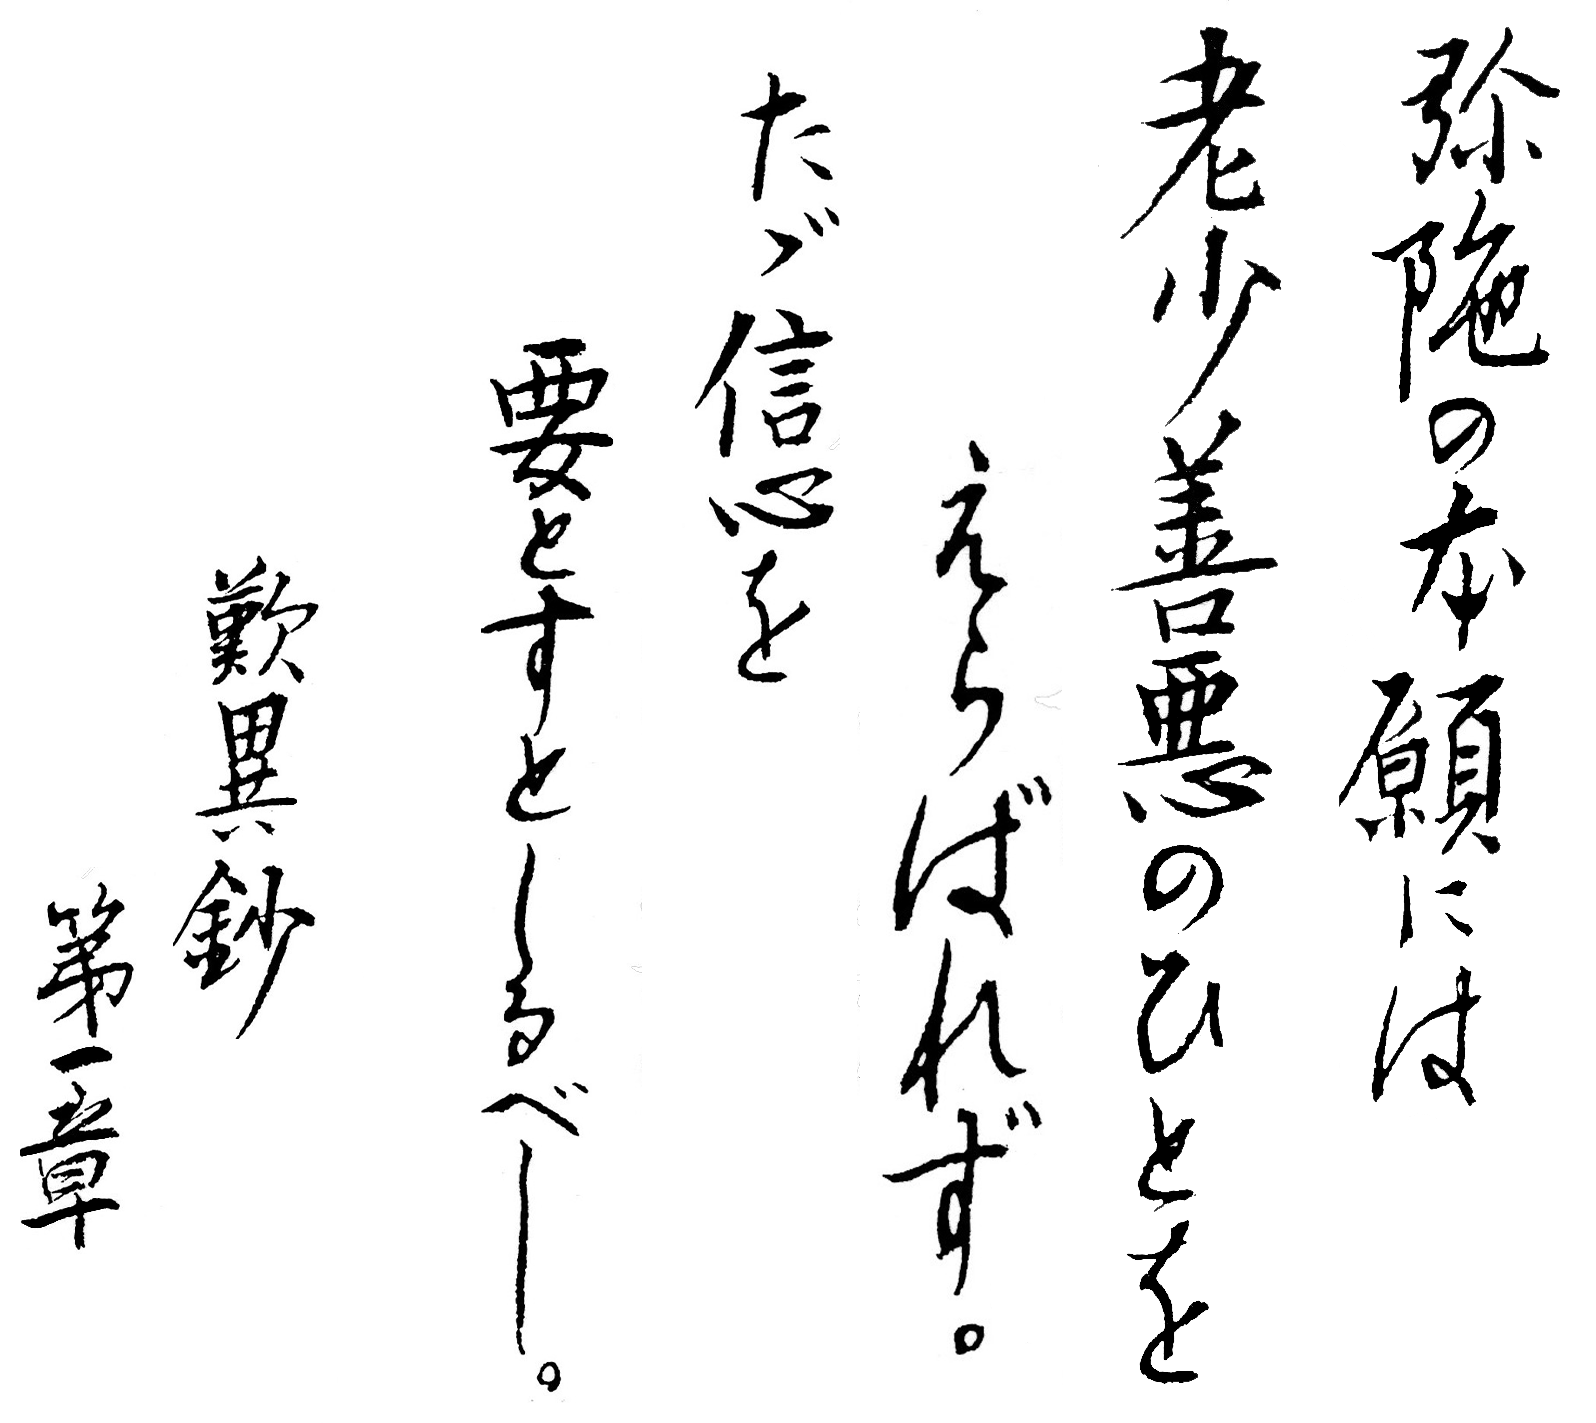 弥陁の本願には
老少善悪のひとを
えらばれず。
たゞ信心を
要とすとしるべし。
歎異鈔
第一章